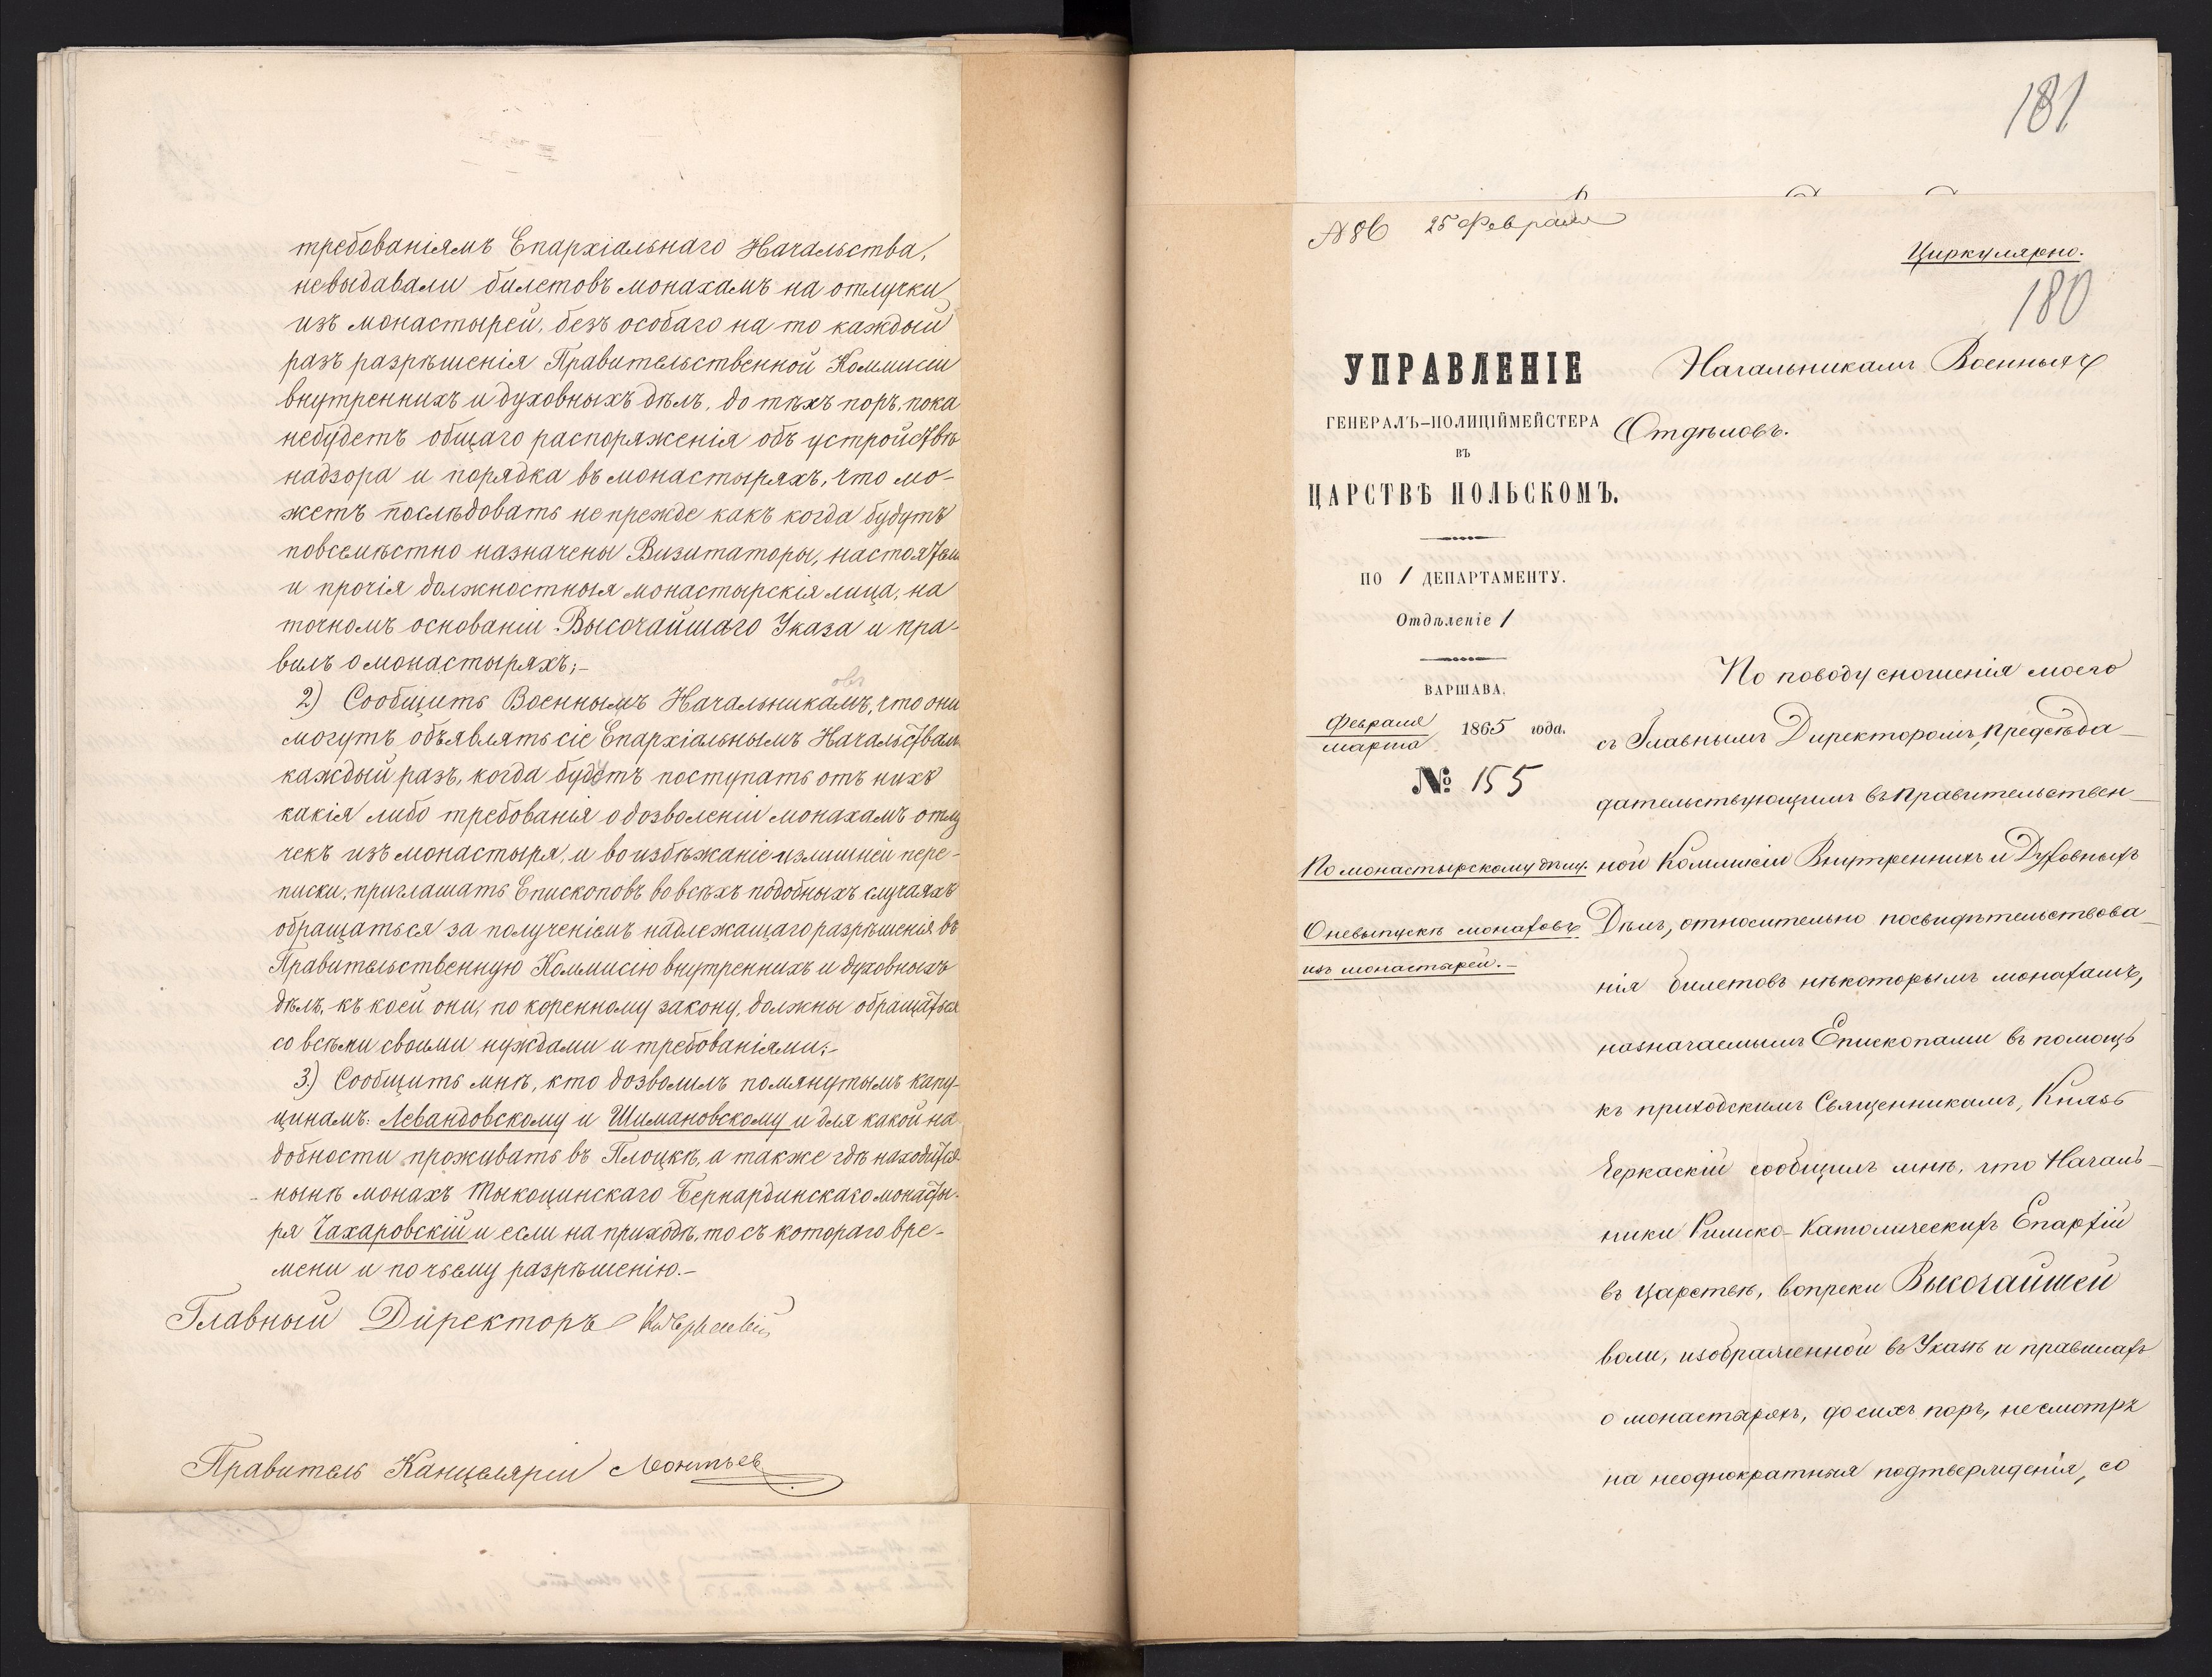 требованіямъ Епархіальнаго Начальства,
невыдавали билетовъ монахамъ на отлучки
изъ монастырей, безъ особаго на то каждый
разъ разрѣшенія Правительственной Коммисіи
внутреннихъ и духовныхъ дѣлъ, до тѣхъ поръ, пока
небудетъ общаго распоряженія объ устройствѣ
надзора и порядка въ монастыряхъ, что мо-
жетъ послѣдовать не прежде какъ когда будутъ
повсемѣстно назначены Визитаторы, настоятели
и прочія должностныя монастырскія лица, на
точномъ основаніи Высочайшаго Указа и пра-
вилъ о монастыряхъ;-
2) Сообщить Военнымъ Начальникамъ, что они
могутъ объявлять сіе Епархіальнымъ Начальствамъ
каждый разъ, когда будутъ поступать отъ нихъ
какія либо требованія о дозволеніи монахамъ отлу
чекъ изъ монастыря, и во избѣжаніе излишней пере-
писки, приглашать Епископовъ во всѣхъ подобныхъ случаяхъ
обращаться за полученіемъ надлежащаго разрѣшенія въ
Правительственную Коммисію внутреннихъ и духовныхъ
дѣлъ, къ коей они, по коренному закону, должны обращаться
со всѣми своими нуждами и требованіями;-
3.) Сообщить мнѣ, кто дозволилъ помянутымъ капу-
цинамъ: Левандовскому и Шимановскому и для какой на
добности проживать въ Плоцкѣ, а также гдѣ находится
нынѣ монахъ Тыкоцинскаго Бернардинскаго монасты-
ря Чахаровскій и если на приходѣ, то съ котораго вре-
мени и по чьему разрѣшенію.-
Главный Директоръ
Правитель Канцеляріи Леонтьев
181
№ 86 25 Февраля
Циркулярно.
180
УПРАВЛЕНІЕ
ГЕНЕРАЛЪ-ПОЛИЦІЙМЕЙСТЕРА
ВЪ
ЦАРСТВѢ ПОЛЬСКОМЪ.
ПО 1 ДЕПАРТАМЕНТУ.
Отдѣленіе 1
ВАРШАВА,
Февраля
Марта 1865 года.
№ 155
По монастырскому дѣлу.
О невыпускѣ монаховъ
изъ монастырей.-
Начальникамъ Военныхъ
Отдѣловъ.
По поводу сношенія моего
съ Главнымъ Директоромъ, Предсѣда-
дательствующимъ въ Правительствен-
ной Коммисіи Внутреннихъ и Духовныхъ
Дѣлъ, относительно посвидѣтельствова-
нія билетовъ нѣкоторымъ монахамъ,
назначаемымъ Епископами въ помощь
къ приходскимъ Священникамъ, Князь
Черкаскій сообщилъ мнѣ, что Началь-
ники Римско-Католическихъ Епархій
въ Царствѣ, вопреки Высочайшей
воли, изображенной въ Указѣ и правилахъ
о монастыряхъ, до сихъ поръ, не смотря
на неоднократныя подтвержденія, со